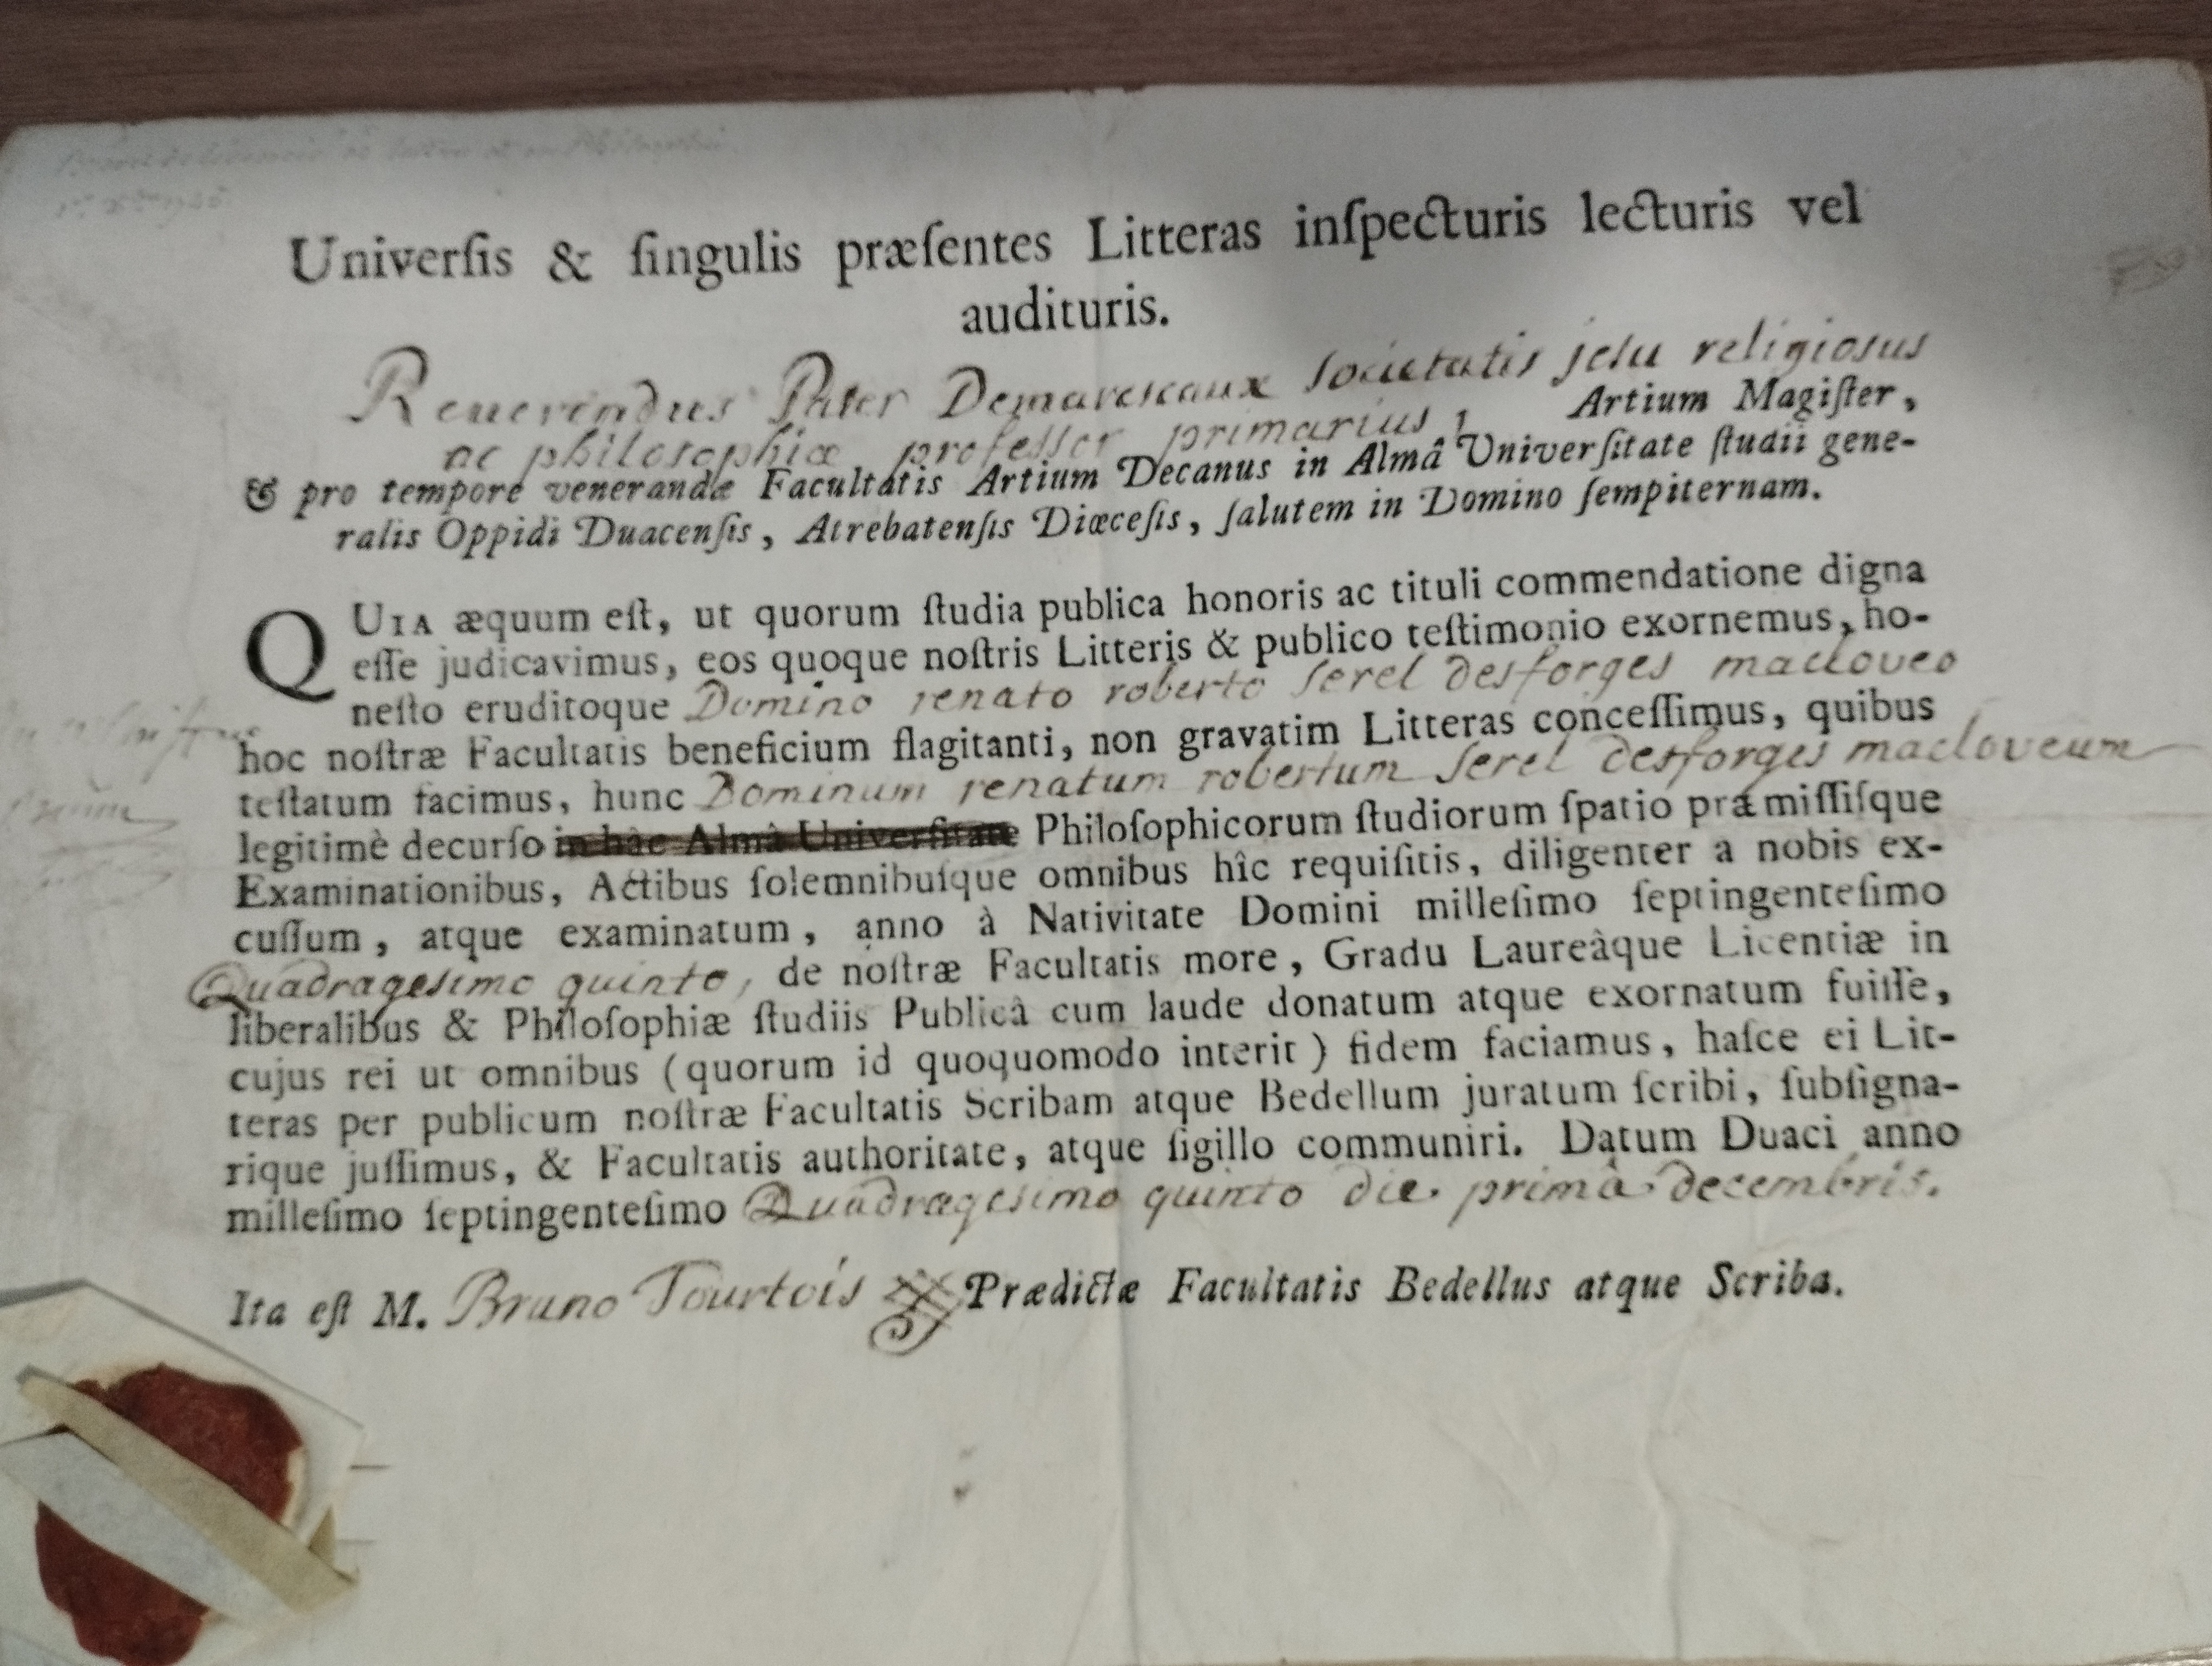 Universis & singulis præsentes Litteras inspecturis lecturis vel
audituris.
Reuerendus Pater Demarescaux societatis jesu religiosus
ac philosophiæ professor primarius, Artium Magister,
& pro tempore venerandæ Facultatis Artium Decanus in Almâ Universitate studii gene-
ralis Oppidi Duacensis, Atrebatensis Diœcesis, salutem in Domino sempiternam.
QUIA æquum est, ut quorum studia publica honoris ac tituli commendatione digna
esse judicavimus, eos quoque nostris Litteris & publico testimonio exornemus, ho-
nesto eruditoque Domino renato roberto serel desforges macloveo
hoc nostræ Facultatis beneficium flagitanti, non gravatim Litteras concessimus, quibus
testatum facimus, hunc Dominum renatum robertum serel desforges macloveum
legitimè decurso in hâc Almâ Universitate Philosophicorum studiorum spatio præmissisque
Examinationibus, Actibus solemnibusque omnibus hîc requisitis, diligenter a nobis ex-
cussum, atque examinatum, anno à Nativitate Domini millesimo septingentesimo
Quadragesimo quinto, de nostræ Facultatis more, Gradu Laureâque Licentiæ in
liberalibus & Philosophiæ studiis Publicâ cum laude donatum atque exornatum fuisse,
cujus rei ut omnibus (quorum id quoquomodo interit) fidem faciamus, hasce ei Lit-
teras per publicum nostræ Facultatis Scribam atque Bedellum juratum scribi, subsigna-
rique jussimus, & Facultatis authoritate, atque sigillo communiri. Datum Duaci anno
millesimo septingentesimo Quadragesimo quinto die primâ decembris.
Ita est M. Bruno Tourtois Prædictæ Facultatis Bedellus atque Scriba.